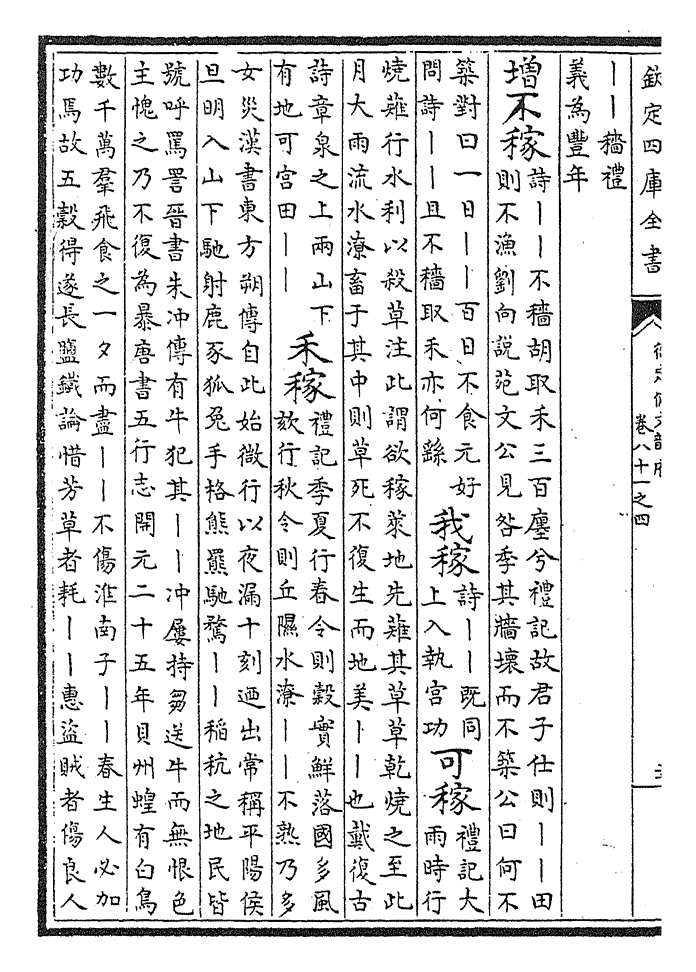 欽定四庫全書
卷八十一之四
丨丨穡禮
義為豐年
增不稼
詩丨丨不穡胡取禾三百廛兮禮記故君子仕則丨丨田
則不漁劉向說苑文公見咎季其牆壞而不築公曰何不
築對曰一日丨丨百日不食元好
問詩丨丨且不穡取禾亦何繇
我稼
詩丨丨既同
上入執宮功
可稼
禮記大
雨時行
燒薙行水利以殺草注此謂欲稼萊地先薙其草草乾燒之至此
月大雨流水潦畜于其中則草死不復生而地美丨丨也戴復古
詩章泉之上兩山下
有地可宮田丨丨
禾稼
禮記季夏行春令則穀實鮮落國多風
欬行秋令則丘隰水潦丨丨不熟乃多
女災漢書東方朔傳自此始微行以夜漏十刻迺出常稱平陽侯
旦明入山下馳射鹿豕狐兔手格熊羆馳騖丨丨稻秔之地民皆
號呼罵詈晉書朱冲傳有牛犯其丨丨冲屢持芻送牛而無恨色
主愧之乃不復為暴唐書五行志開元二十五年貝州蝗有白鳥
數千萬羣飛食之一夕而盡丨丨不傷淮南子丨丨春生人必加
功焉故五穀得遂長鹽鐵論惜芳草者耗丨丨惠盜賊者傷良人